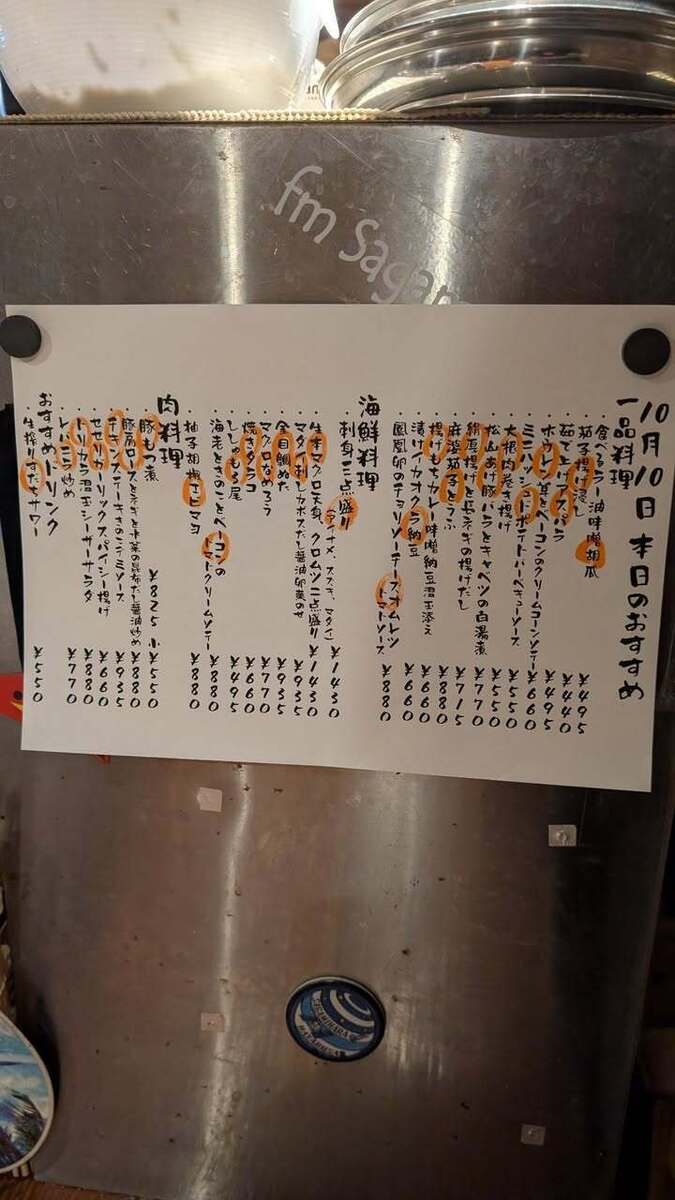 fm Sagam
10月10日 本日のおすすめ
一品料理
・食べるラー油味噌胡瓜 ¥495
・茄子揚げ浸し ¥440
・茹で上げアスパラ ¥495
・ホウレン草とベーコンのクリームコーンソテー ¥660
・ミニハッシュドポテトバーベキューソース ¥550
・大根肉巻き揚げ ¥550
・松山あげ豚バラとキャベツの白湯煮 ¥770
・絹厚揚げと長ネギの揚げだし ¥715
・麻婆茄子とうふ ¥880
・揚げもちカレー味噌納豆温玉添え ¥660
・漬けイカオクラ納豆 ¥660
・鳳凰卵のチョリソーチーズオムレツ トマトソース ¥880
海鮮料理
・刺身三点盛り (アイナメ、スズキ、マダイ) ¥1430
・生本マグロ天身、クロムツ二点盛り ¥1430
・マダイ刺しカボスだし醤油卵黄のせ ¥935
・金目鯛ぬた ¥935
・マグロなめろう ¥770
・焼きタラコ ¥495
・ししゃも5尾
・海老ときのことベーコンの トマトクリームソテー ¥880
・柚子胡椒エビマヨ ¥880
肉料理
・豚もつ煮 ¥825 小¥550
・豚肩ロースとネギと水菜の昆布だし醤油炒め ¥880
・チキンステーキきのこデミソース ¥935
・セセリガーリックスパイシー揚げ ¥660
・トリカラ温玉シーザーサラダ ¥880
・レバニラ炒め ¥770
おすすめドリンク
・生搾りすだちサワー ¥550